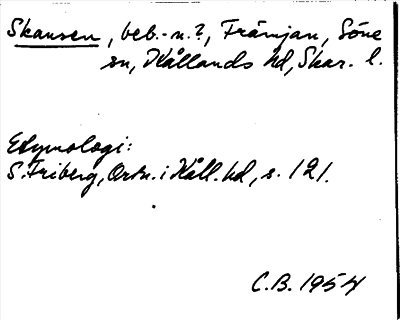 Skansen, beb.-n.?, Främjan, Söne
sn, Kållands hd, Skar. l.
Etymologi:
S. Friberg, Ortn. i Kåll. hd, s. 121.
C.B. 1954